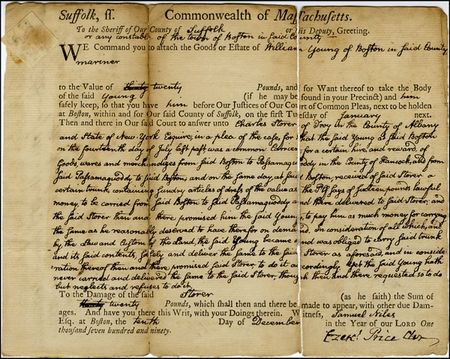 Suffolk, ss. Commonwealth of Massachusetts.
To the Sheriff of Our County of Suffolk or his Deputy, Greeting.
or any constable of the town of Boston in said County
WE Command you to attach the Goods or Estate of William Young of Boston in said County
mariner
to the Value of twenty Pounds, and for Want thereof to take the Body
of the said Young (if he may be found in your Precinct) and him
safely keep, so that you have him before Our Justices of Our Court of Common Pleas, next to be holden
at Boston, within and for Our said County of Suffolk, on the first Tuesday of January next.
Then and there in Our said Court to answer unto Charles Storer of Troy in the County of Albany
and State of New York Esquire, in a plea of the case, for that the said Young at said Boston
on the fourteenth day of July last past was a common Carrier for a certain hire, and reward, of
Goods, wares and merchandizes from said Boston to Passamaquoddy in the County of Hancock, and from
said Passamaquoddy to said Boston, and on the same day, at said Boston, received of said Storer a
certain trunk containing sundry articles of the value as the Plf says of sixteen pounds lawful
money, to be carried from said Boston to said Passamaquoddy and there delivered to said Storer, and
the said Storer then and there promised the said Young to pay him as much money for carrying
the same as he reasonably deserved to have therefor on demand, In consideration of all which, and
by the Law and Custom of the Land, the said Young became and was obliged to carry said trunk
and its said contents, safely, and deliver the same to the said Storer as aforesaid, and in conside
ration thereof then and there, promised said Storer to do it accordingly. Yet the said Young hath
never carried and delivered the same to the said Storer, tho' he then and there requested so to do
but neglects and refuses to do it.
To the Damage of the said Storer (as he saith) the Sum of
twenty Pounds, which shall then and there be made to appear, with other due Dam-
ages. And have you there this Writ, with your Doings therein. Witness, Samuel Niles
Esq. at Boston, the tenth Day of December in the Year of our LORD One
thousand seven hundred and ninety.
Ezek. Price Cler